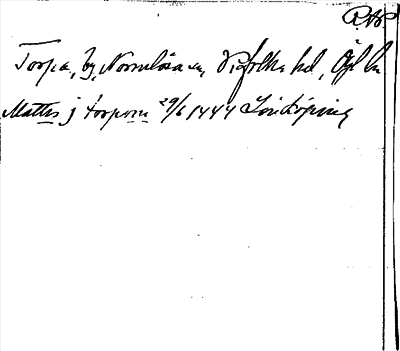 RAP
Torpa, by, Normlösa sn, Vifolka hd, Ögl. ln
Mattis j torpom 29/6 1444 Linköping